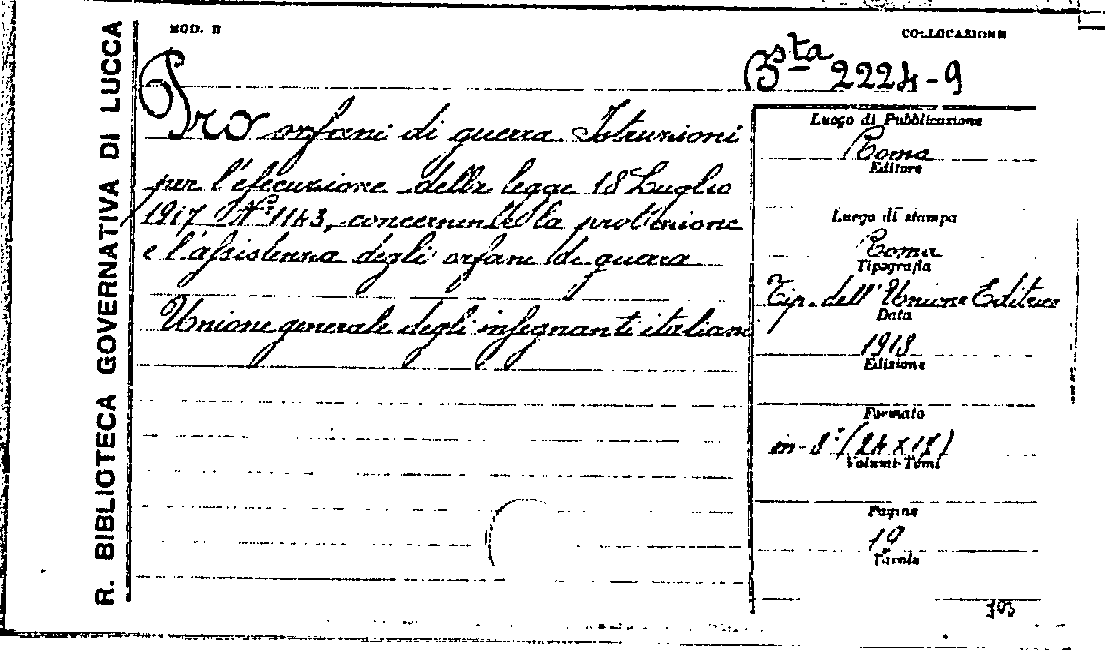 R. BIBLIOTECA GOVERNATIVA DI LUCCA
MOD. B
COLLOCAZIONE
Bsta 2224-9
Pro orfani di guerra Istruzioni
per l'esecuzione della legge 18 Luglio
1917 No. 1143, concernente la protezione
e l'assistenza degli orfani di guerra
Unione generale degli insegnanti italiani
Luogo di Pubblicazione
Roma
Editore
Luogo di stampa
Roma
Tipografia
Tip. dell'Unione Editrice
Data
1918
Edizione
Formato
in-8° (24x17)
Volumi-Tomi
Pagine
19
Tavole